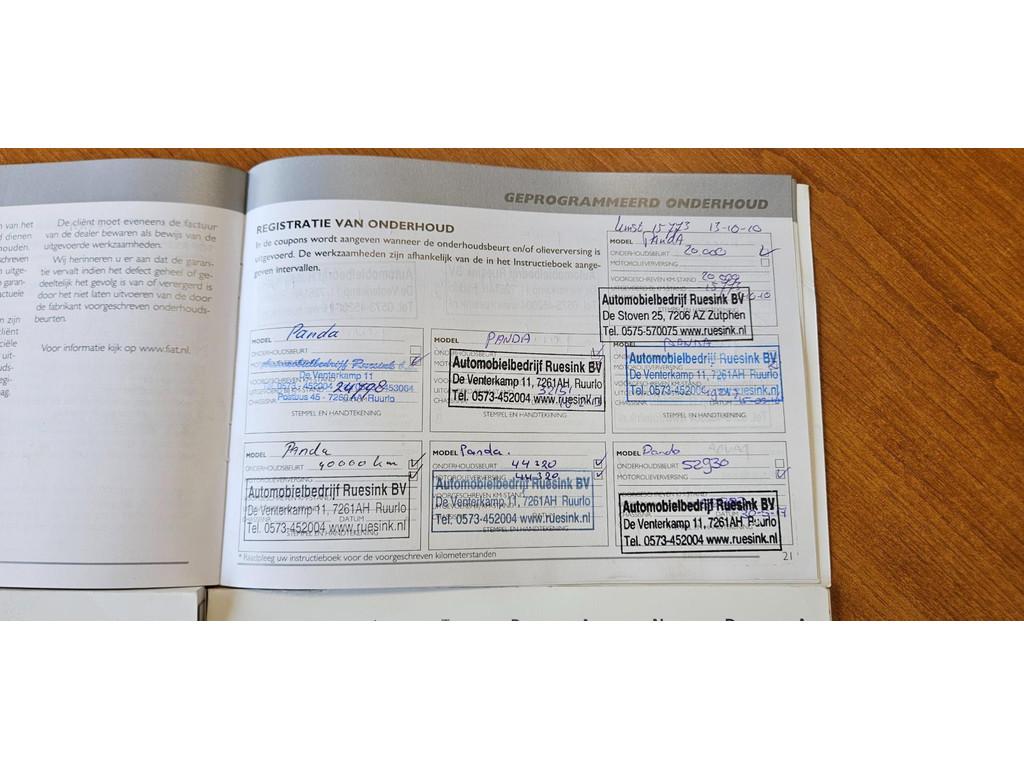 n van het
d dienen
ouden.
schreven
uitge-
garan-
actuele
zijn
cliënt
ciële
uit-
egi-
ag.
De cliënt moet eveneens de factuur
van de dealer bewaren als bewijs van de
uitgevoerde werkzaamheden.
Wij herinneren u er aan dat de garan-
tie vervalt indien het defect geheel of ge-
deeltelijk het gevolg is van of verergerd is
door het niet laten uitvoeren van de door
de fabrikant voorgeschreven onderhouds-
beurten.
Voor informatie kijk op www.fiat.nl.
GEPROGRAMMEERD ONDERHOUD
REGISTRATIE VAN ONDERHOUD
In de coupons wordt aangeven wanneer de onderhoudsbeurt en/of olieverversing is
uitgevoerd. De werkzaamheden zijn afhankelijk van de in het Instructieboek aange-
geven intervallen.
kmst 15773 13-10-10
MODEL PANDA
ONDERHOUDSBEURT 20000
MOTOROLIEVERVERSING
VOORGESCHREVEN KM-STAND
Automobielbedrijf Ruesink BV
De Stoven 25, 7206 AZ Zutphen
Tel. 0575-570075 www.ruesink.nl
MODEL Panda
ONDERHOUDSBEURT
Automobielbedrijf Ruesink
De Venterkamp 11
24798
Postbus 45 - 7250 Ruurlo
STEMPEL EN HANDTEKENING
MODEL PANDA
Automobielbedrijf Ruesink BV
De Venterkamp 11, 7261AH Ruurlo
Tel. 0573-452004 www.ruesink.nl
STEMPEL EN HANDTEKENING
PANDA
Automobielbedrijf Ruesink BV
De Venterkamp 11, 7261AH Ruurlo
Tel. 0573-452004 www.ruesink.nl
STEMPEL EN HANDTEKENING
MODEL Panda
ONDERHOUDSBEURT 40000 km
MOTOROLIEVERVERSING
Automobielbedrijf Ruesink BV
De Venterkamp 11, 7261AH Ruurlo
DATUM
Tel. 0573-452004 www.ruesink.nl
STEMPEL EN HANDTEKENING
MODEL Panda.
ONDERHOUDSBEURT 44320
MOTOROLIEVERVERSING 44320
Automobielbedrijf Ruesink BV
De Venterkamp 11, 7261AH Ruurlo
Tel. 0573-452004 www.ruesink.nl
STEMPEL EN HANDTEKENING
MODEL Panda
ONDERHOUDSBEURT 52930
MOTOROLIEVERVERSING
Automobielbedrijf Ruesink BV
De Venterkamp 11, 7261AH Ruurlo
Tel. 0573-452004 www.ruesink.nl
* Raadpleeg uw instructieboek voor de voorgeschreven kilometerstanden
21